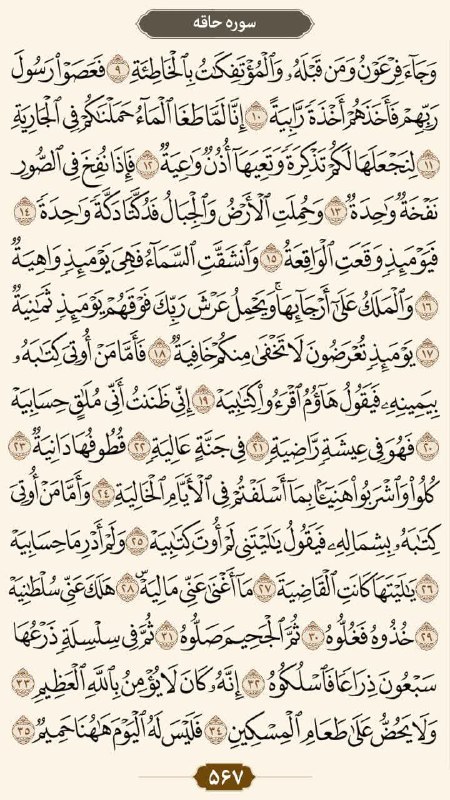 سوره حاقه
وَجَآءَ فِرْعَوْنُ وَمَن قَبْلَهُۥ وَٱلْمُؤْتَفِكَٰتُ بِٱلْخَاطِئَةِ ۹ فَعَصَوْا۟ رَسُولَ
رَبِّهِمْ فَأَخَذَهُمْ أَخْذَةً رَّابِيَةً ۱۰ إِنَّا لَمَّا طَغَا ٱلْمَآءُ حَمَلْنَٰكُمْ فِى ٱلْجَارِيَةِ
۱۱ لِنَجْعَلَهَا لَكُمْ تَذْكِرَةً وَتَعِيَهَآ أُذُنٌ وَٰعِيَةٌ ۱۲ فَإِذَا نُفِخَ فِى ٱلصُّورِ
نَفْخَةٌ وَٰحِدَةٌ ۱۳ وَحُمِلَتِ ٱلْأَرْضُ وَٱلْجِبَالُ فَدُكَّتَا دَكَّةً وَٰحِدَةً ۱۴
فَيَوْمَئِذٍ وَقَعَتِ ٱلْوَاقِعَةُ ۱۵ وَٱنشَقَّتِ ٱلسَّمَآءُ فَهِىَ يَوْمَئِذٍ وَاهِيَةٌ
۱۶ وَٱلْمَلَكُ عَلَىٰٓ أَرْجَآئِهَا ۚ وَيَحْمِلُ عَرْشَ رَبِّكَ فَوْقَهُمْ يَوْمَئِذٍ ثَمَٰنِيَةٌ
۱۷ يَوْمَئِذٍ تُعْرَضُونَ لَا تَخْفَىٰ مِنكُمْ خَافِيَةٌ ۱۸ فَأَمَّا مَنْ أُوتِىَ كِتَٰبَهُۥ
بِيَمِينِهِۦ فَيَقُولُ هَآؤُمُ ٱقْرَءُوا۟ كِتَٰبِيَهْ ۱۹ إِنِّى ظَنَنتُ أَنِّى مُلَٰقٍ حِسَابِيَهْ
۲۰ فَهُوَ فِى عِيشَةٍ رَّاضِيَةٍ ۲۱ فِى جَنَّةٍ عَالِيَةٍ ۲۲ قُطُوفُهَا دَانِيَةٌ ۲۳
كُلُوا۟ وَٱشْرَبُوا۟ هَنِيٓـًٔۢا بِمَآ أَسْلَفْتُمْ فِى ٱلْأَيَّامِ ٱلْخَالِيَةِ ۲۴ وَأَمَّا مَنْ أُوتِىَ
كِتَٰبَهُۥ بِشِمَالِهِۦ فَيَقُولُ يَٰلَيْتَنِى لَمْ أُوتَ كِتَٰبِيَهْ ۲۵ وَلَمْ أَدْرِ مَا حِسَابِيَهْ
۲۶ يَٰلَيْتَهَا كَانَتِ ٱلْقَاضِيَةَ ۲۷ مَآ أَغْنَىٰ عَنِّى مَالِيَهْ ۜ ۲۸ هَلَكَ عَنِّى سُلْطَٰنِيَهْ
۲۹ خُذُوهُ فَغُلُّوهُ ۳۰ ثُمَّ ٱلْجَحِيمَ صَلُّوهُ ۳۱ ثُمَّ فِى سِلْسِلَةٍ ذَرْعُهَا
سَبْعُونَ ذِرَاعًا فَٱسْلُكُوهُ ۳۲ إِنَّهُۥ كَانَ لَا يُؤْمِنُ بِٱللَّهِ ٱلْعَظِيمِ ۳۳
وَلَا يَحُضُّ عَلَىٰ طَعَامِ ٱلْمِسْكِينِ ۳۴ فَلَيْسَ لَهُ ٱلْيَوْمَ هَٰهُنَا حَمِيمٌ ۳۵
۵۶۷